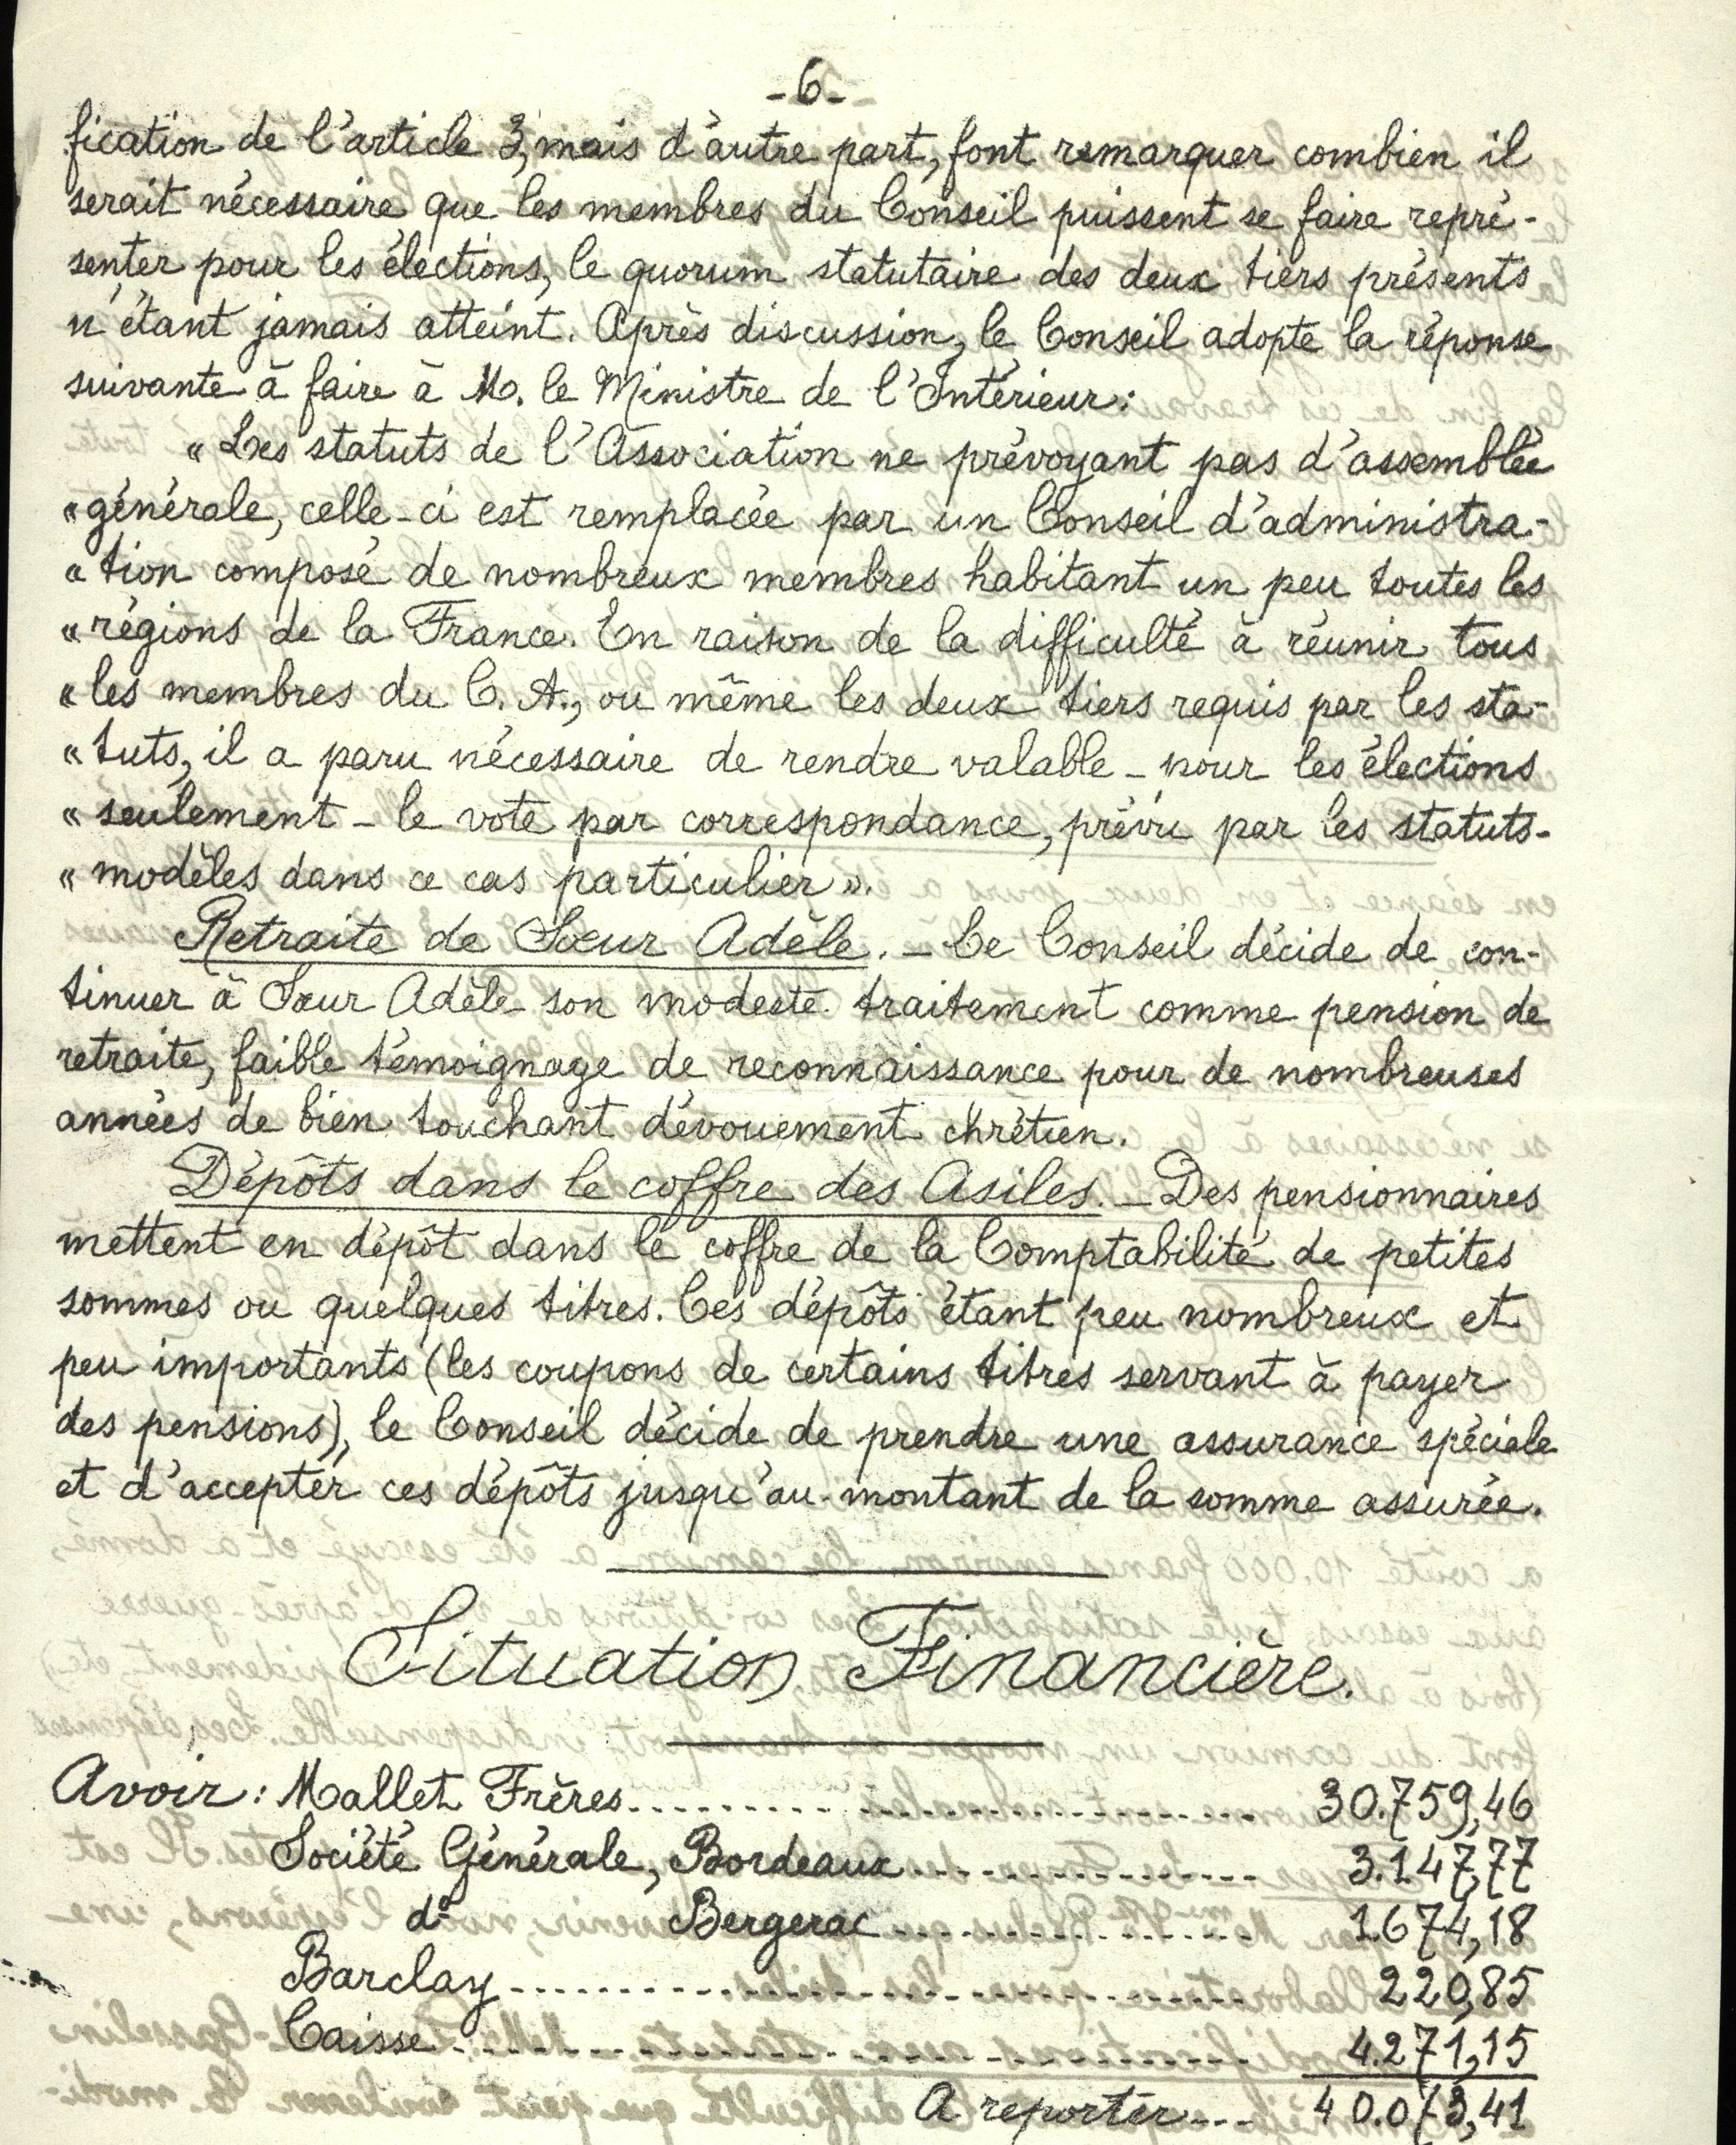 -6-
fication de l'article 3, mais d'autre part, font remarquer combien il
serait nécessaire que les membres du Conseil puissent se faire repré-
senter pour les élections, le quorum statutaire des deux tiers présents
n'étant jamais atteint. Après discussion, le Conseil adopte la réponse
suivante à faire à M. le Ministre de l'Intérieur:
« Les statuts de l'Association ne prévoyant pas d'assemblée
« générale, celle-ci est remplacée par un Conseil d'administra-
« tion composé de nombreux membres habitant un peu toutes les
« régions de la France. En raison de la difficulté à réunir tous
« les membres du C. A., ou même les deux tiers requis par les sta-
« tuts, il a paru nécessaire de rendre valable - pour les élections
« seulement - le vote par correspondance, prévu par les statuts-
« modèles dans ce cas particulier ».
Retraite de Sœur Adèle. - Le Conseil décide de con-
tinuer à Sœur Adèle son modeste traitement comme pension de
retraite, faible témoignage de reconnaissance pour de nombreuses
années de bien touchant dévouement chrétien.
Dépôts dans le coffre des Asiles. - Des pensionnaires
mettent en dépôt dans le coffre de la Comptabilité de petites
sommes ou quelques titres. Ces dépôts étant peu nombreux et
peu importants (les coupons de certains titres servant à payer
des pensions), le Conseil décide de prendre une assurance spéciale
et d'accepter ces dépôts jusqu'au montant de la somme assurée.
Situation Financière.
Avoir: Mallet Frères.......... 30.759,46
Société Générale, Bordeaux.......... 3.147,77
d° Bergerac.......... 1.674,18
Barclay.......... 220,85
Caisse.......... 4.271,15
A reporter... 40.073,41